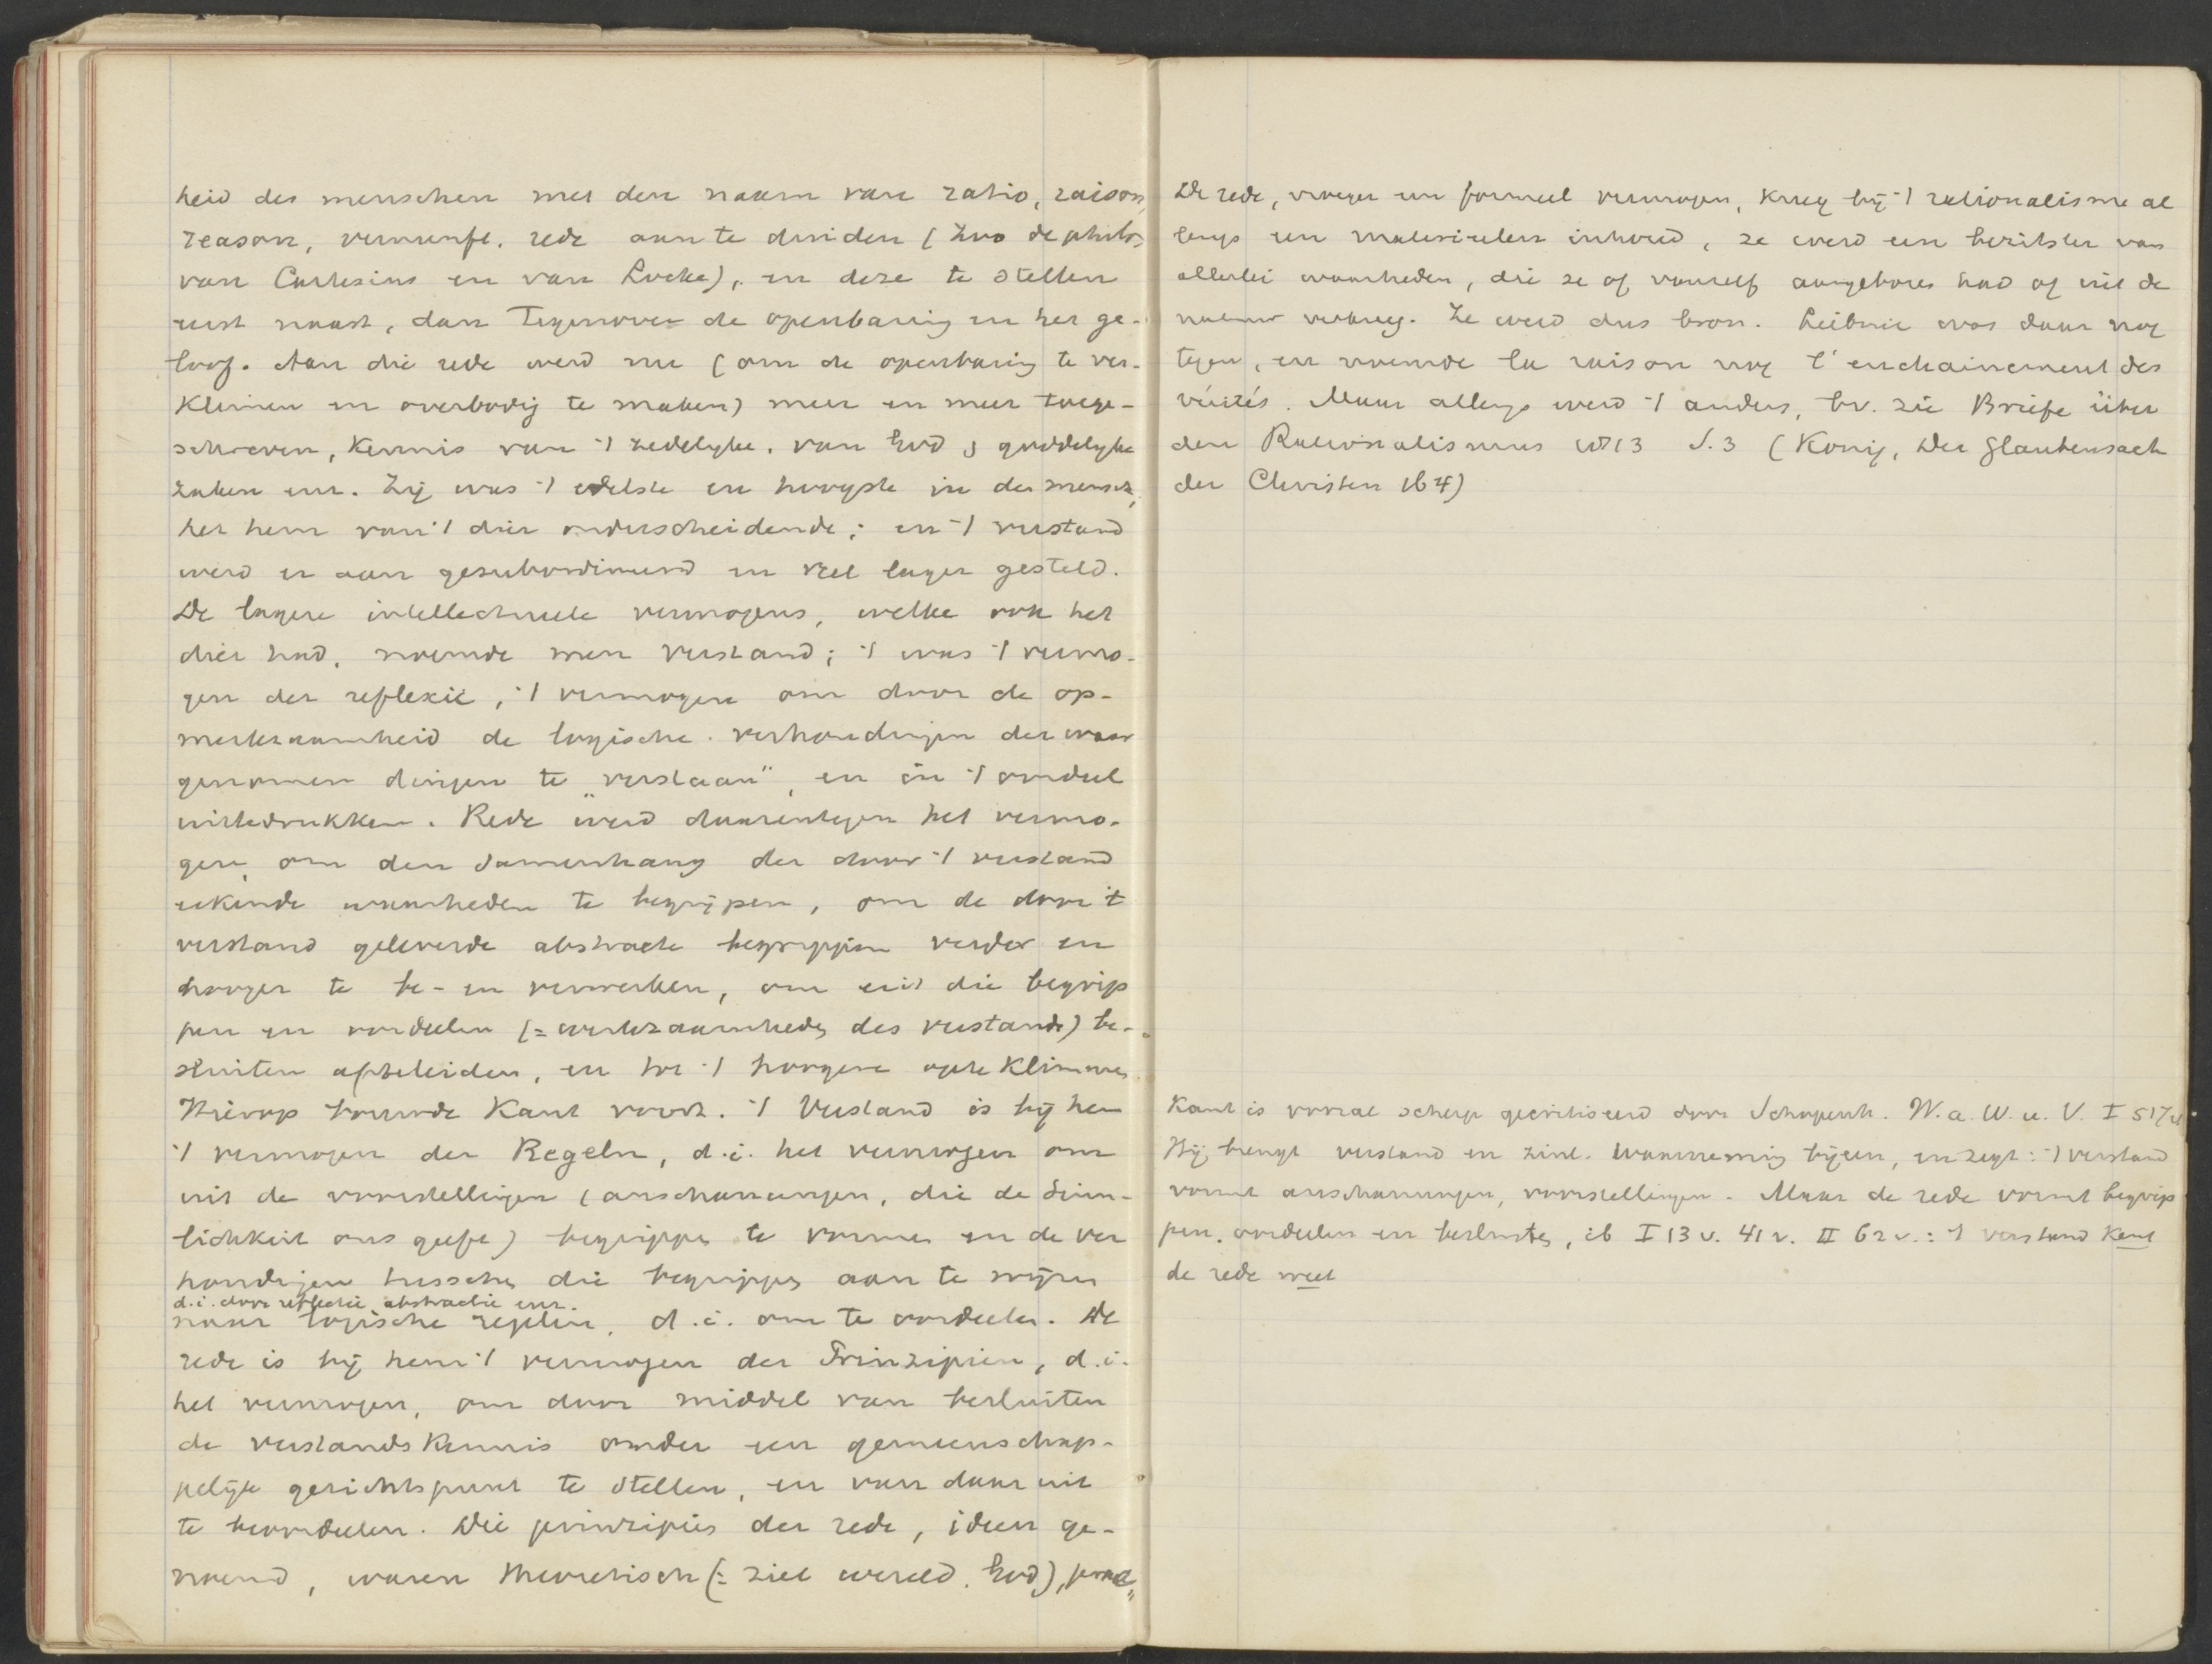 heid des menschen met den naam van ratio, raison,
reason, vernunft, rede aan te duiden (zoo de philos.
van Cartesius en van Locke), en deze te stellen
eerst naast, dan tegenover de openbaring en het ge-
loof. Aan die rede werd nu (om de openbaring te ver-
kleinen en overbodig te maken) meer en meer toege-
schreven, kennis van 't zedelyke, van God, goddelyke
zaken enz. Zij was 't edelste en hoogste in den mensch,
het hem van 't dier onderscheidende; en 't verstand
werd er aan gesubordineerd en veel lager gesteld.
De lagere intellectueele vermogens, welke ook het
dier had, noemde men verstand; 't was 't vermo-
gen der reflexie, 't vermogen om door de op-
merkzaamheid de logische verhoudingen der waar
genomen dingen te „verstaan", en in 't oordeel
uittedrukken. Rede werd daarentegen het vermo-
gen, om den samenhang der door 't verstand
erkende waarheden te begrijpen, om de door 't
verstand geleverde abstracte begrippen verder en
hooger te be- en verwerken, om uit die begrip
pen en oordeelen (= werkzaamheden des verstands) be-
sluiten afteleiden, en tot 't hoogere opte klimmen
Hierop bouwde Kant voort. 't Verstand is bij hem
't vermogen der Regeln, d.i. het vermogen om
uit de voorstellingen (anschauungen, die de Sinn-
lichkeit ons geeft) begrippen te vormen en de ver
houdingen tusschen die begrippen aan te wijzen
d.i. door reflectie, abstractie enz.
naar logische regelen, d.i. om te oordeelen. De
rede is bij hem 't vermogen der Prinzipien, d.i.
het vermogen, om door middel van besluiten
de verstandskennis onder een gemeenschap-
pelijk gezichtspunt te stellen, en van daar uit
te beoordeelen. Die principies der rede, ideen ge-
noemd, waren theoretisch (= ziel wereld. God),
De rede, vroeger een formeel vermogen, kreeg bij 't rationalisme al
lengs een materieelen inhoud, ze werd een bezitster van
allerlei waarheden, die ze of vanself aangeboren had of uit de
natuur verkreeg. Ze werd dus bron. Leibnie was daar nog
tegen, en noemde la raison nog l'enchainement des
vérités. Maar allengs werd 't anders, bv. zie Briefe über
den Rationalismus 1813 S.3 (König, Der Glaubensact
der Christen 164)
Kant is vooral scherp gecritiseerd door Schopenh. W. a. W. u. V. I
Hij brengt verstand en zinl. waarneming bijeen, en zegt: 't verstand
vormt anschauungen, voorstellingen. Maar de rede vormt begrip
pen, oordeelen en besluiten, ib I 13 v. 41 v. II 62 v.: 't verstand kent
de rede weet